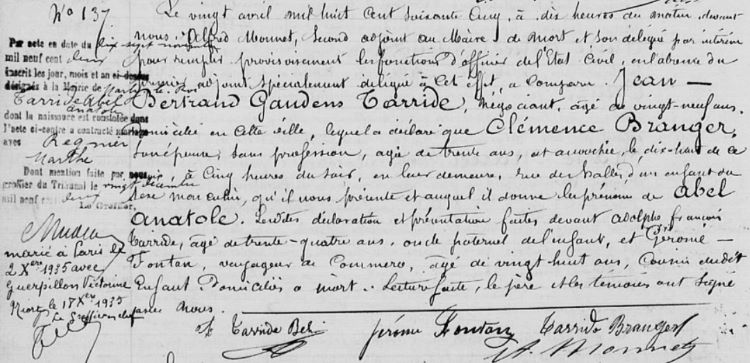 No 137
Le vingt avril mil huit cent soixante cinq, à dix heures du matin, devant
nous Alfred Monnet, Second adjoint au Maire de Niort et son délégué par intérim
pour remplir provisoirement les fonctions d'officier de l'Etat Civil, en l'absence du
premier adjoint spécialement délégué à cet effet, a comparu Jean-
Bertrand Gaudens Tarride, négociant, âgé de vingt-neuf ans
domicilié en cette ville, lequel a déclaré que Clémence Branger,
son épouse, sans profession, agée de trente ans, est accouchée, le dix-huit de ce
mois, à Cinq heures du soir, en leur demeure, rue des halles, d'un enfant du
sexe masculin, qu'il nous présente et auquel il donne les prénoms de Abel
Anatole. Lesdites déclaration et présentation faites devant Adolphe françois
Tarride, âgé de trente-quatre ans, oncle paternel de l'enfant, et Gérome-
Fontan, voyageur de Commerce, âgé de vingt huit ans, Cousin dudit
Enfant Domiciliés à Niort. Lecture faite, le père et les témoins ont Signé
avec Nous.
Tarride Bel jérôme Fontan Tarride Branger
A. Monnet
Par acte en date du dix sept novembre
mil neuf cent cinq
inscrit les jour, mois et an
désignés à la Mairie de
Tarride Abel
dont la naissance est constatée dans
l'acte ci-contre a contracté mariage
avec Regnier
Marthe
Dont mention faite par nous
greffier du Tribunal le vingt décembre
mil neuf cent cinq
Le Greffier,
marié à Paris le
2 Xbre 1935 avec
Guerpillon Victorine
Niort, le 17 Xbre 1935
Le Greffier en chef